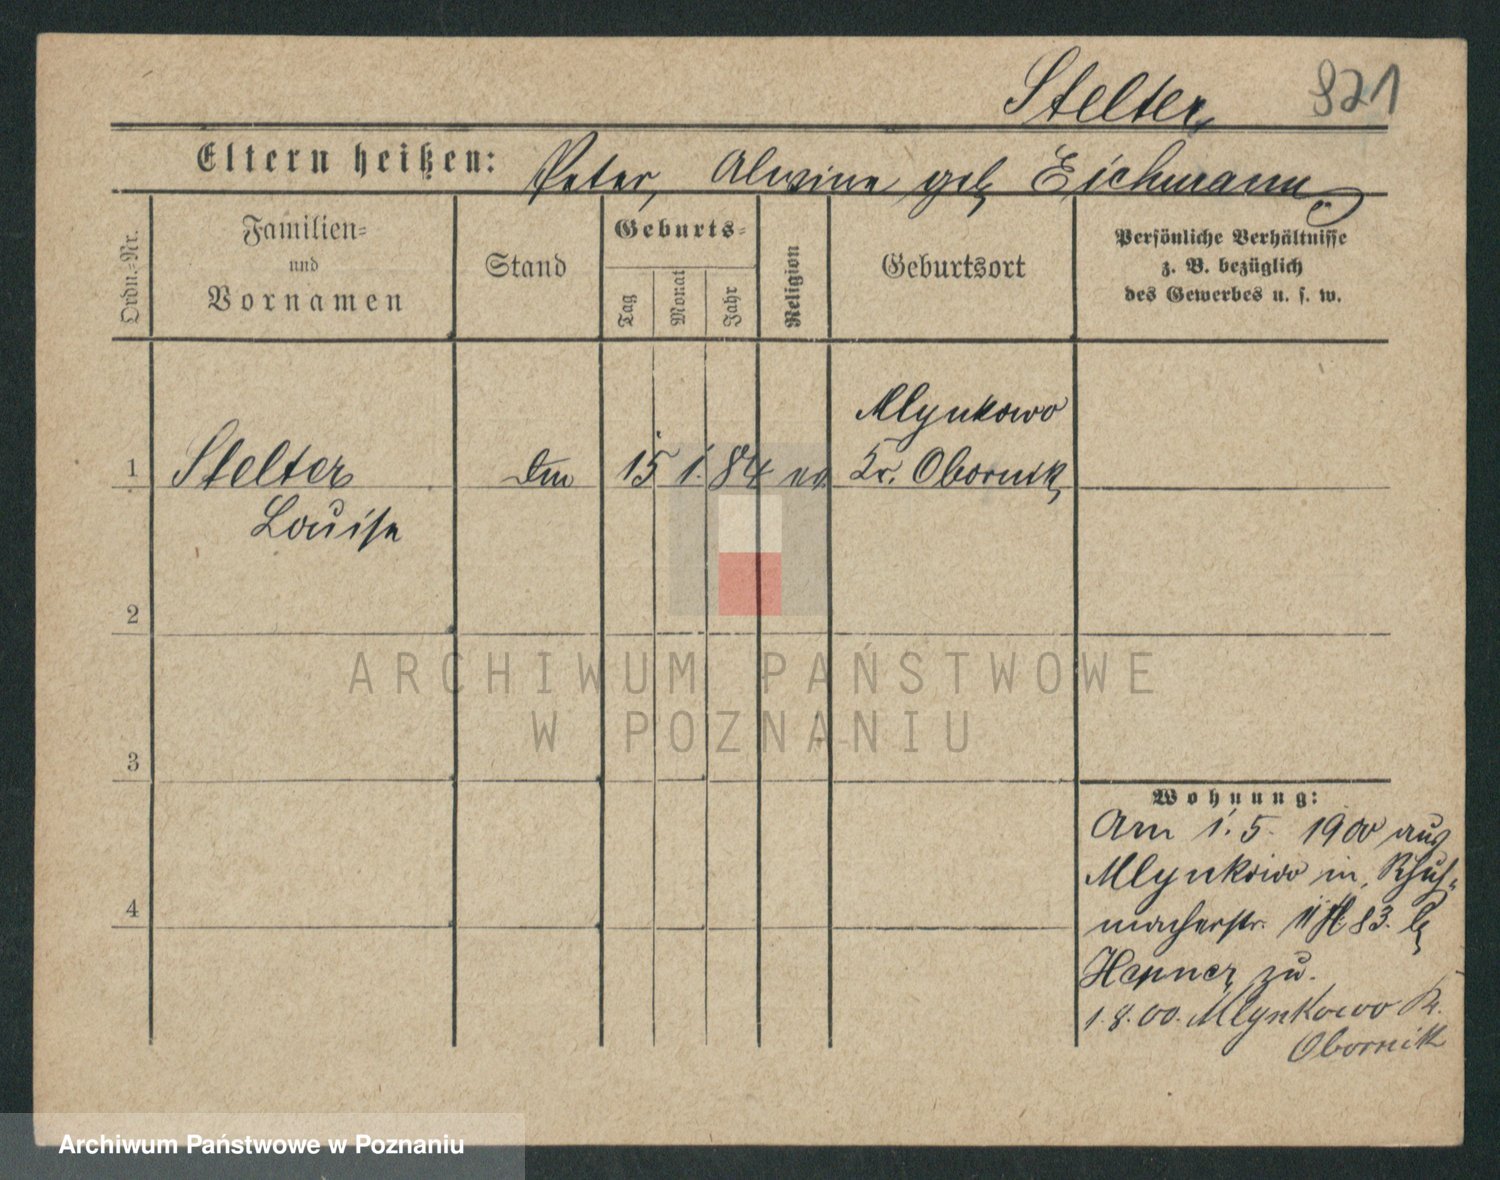 Stelter
821
Eltern heißen: Peter, Alwine geb. Eichmann
Ordn.-Nr.
Familien-
und
Vornamen
Stand
Geburts-
Tag
Monat
Jahr
Religion
Geburtsort
Persönliche Verhältnisse
z. B. bezüglich
des Gewerbes u. s. w.
Mlynkowo
1 Stelter 15 1. 84 ev. Kr. Obornik
Louise
2
ARCHIWUM PAŃSTWOWE
W POZNANIU
3
Wohnung:
Am 1. 5. 1900 aus
Mlynkowo in
macherstr. 83. b
zu.
4
1.8.00. Mlynkowo Kr.
Obornik
Archiwum Państwowe w Poznaniu